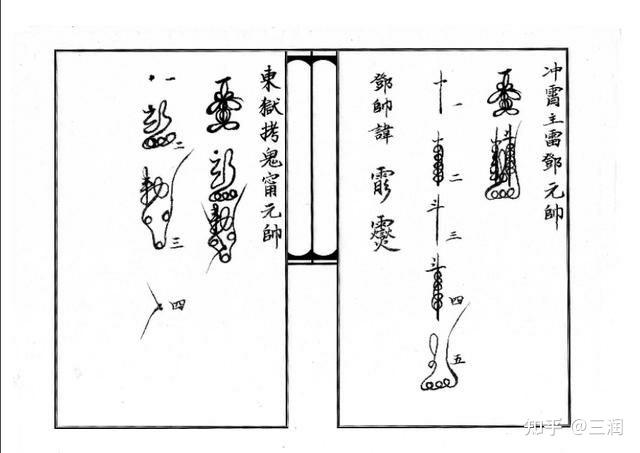 冲霄主雷鄧元帥
一
二
三
四
五
鄧帥諱
東獄拷鬼甯元帥
一
二
三
四
知乎 @三润